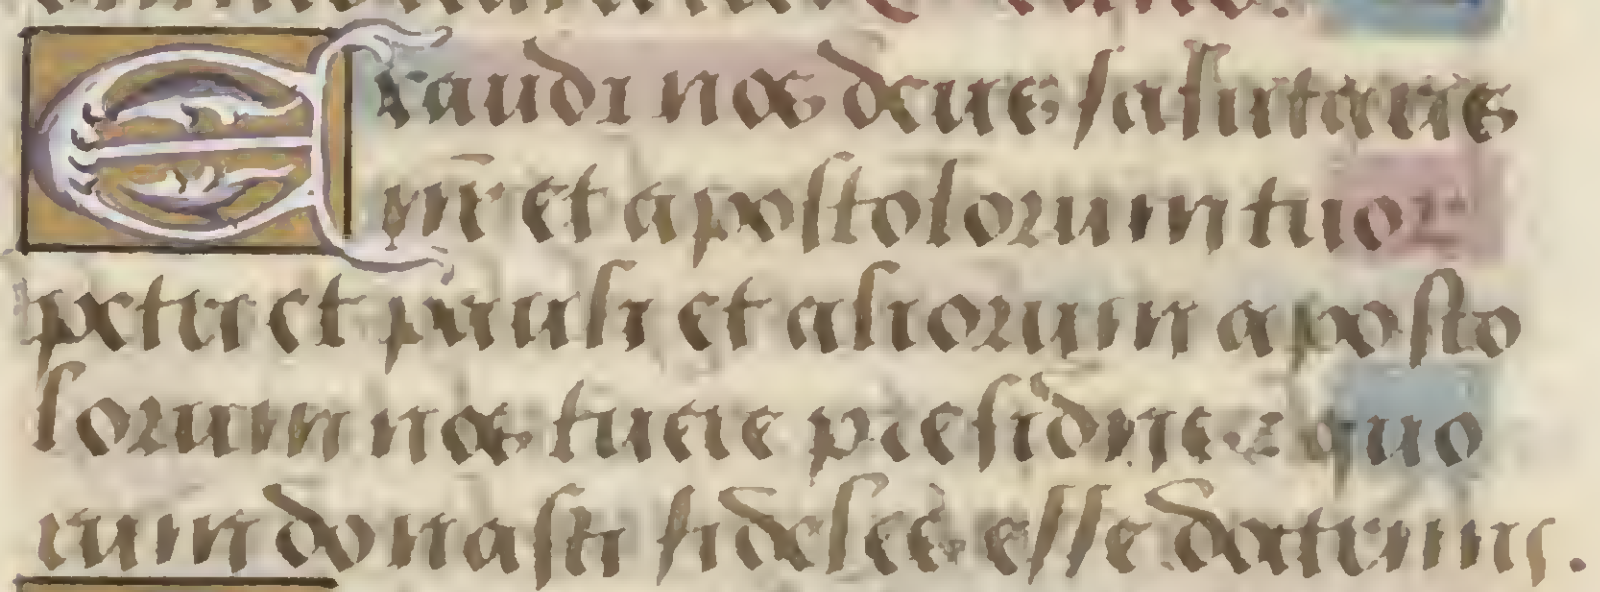 Exaudi nos deus salutaris
nr̄ et apostolorum tuoꝝ
petri et pauli et aliorum aposto
lorum nos tuere presidiis quo
rum donasti fideles esse doctrinis.